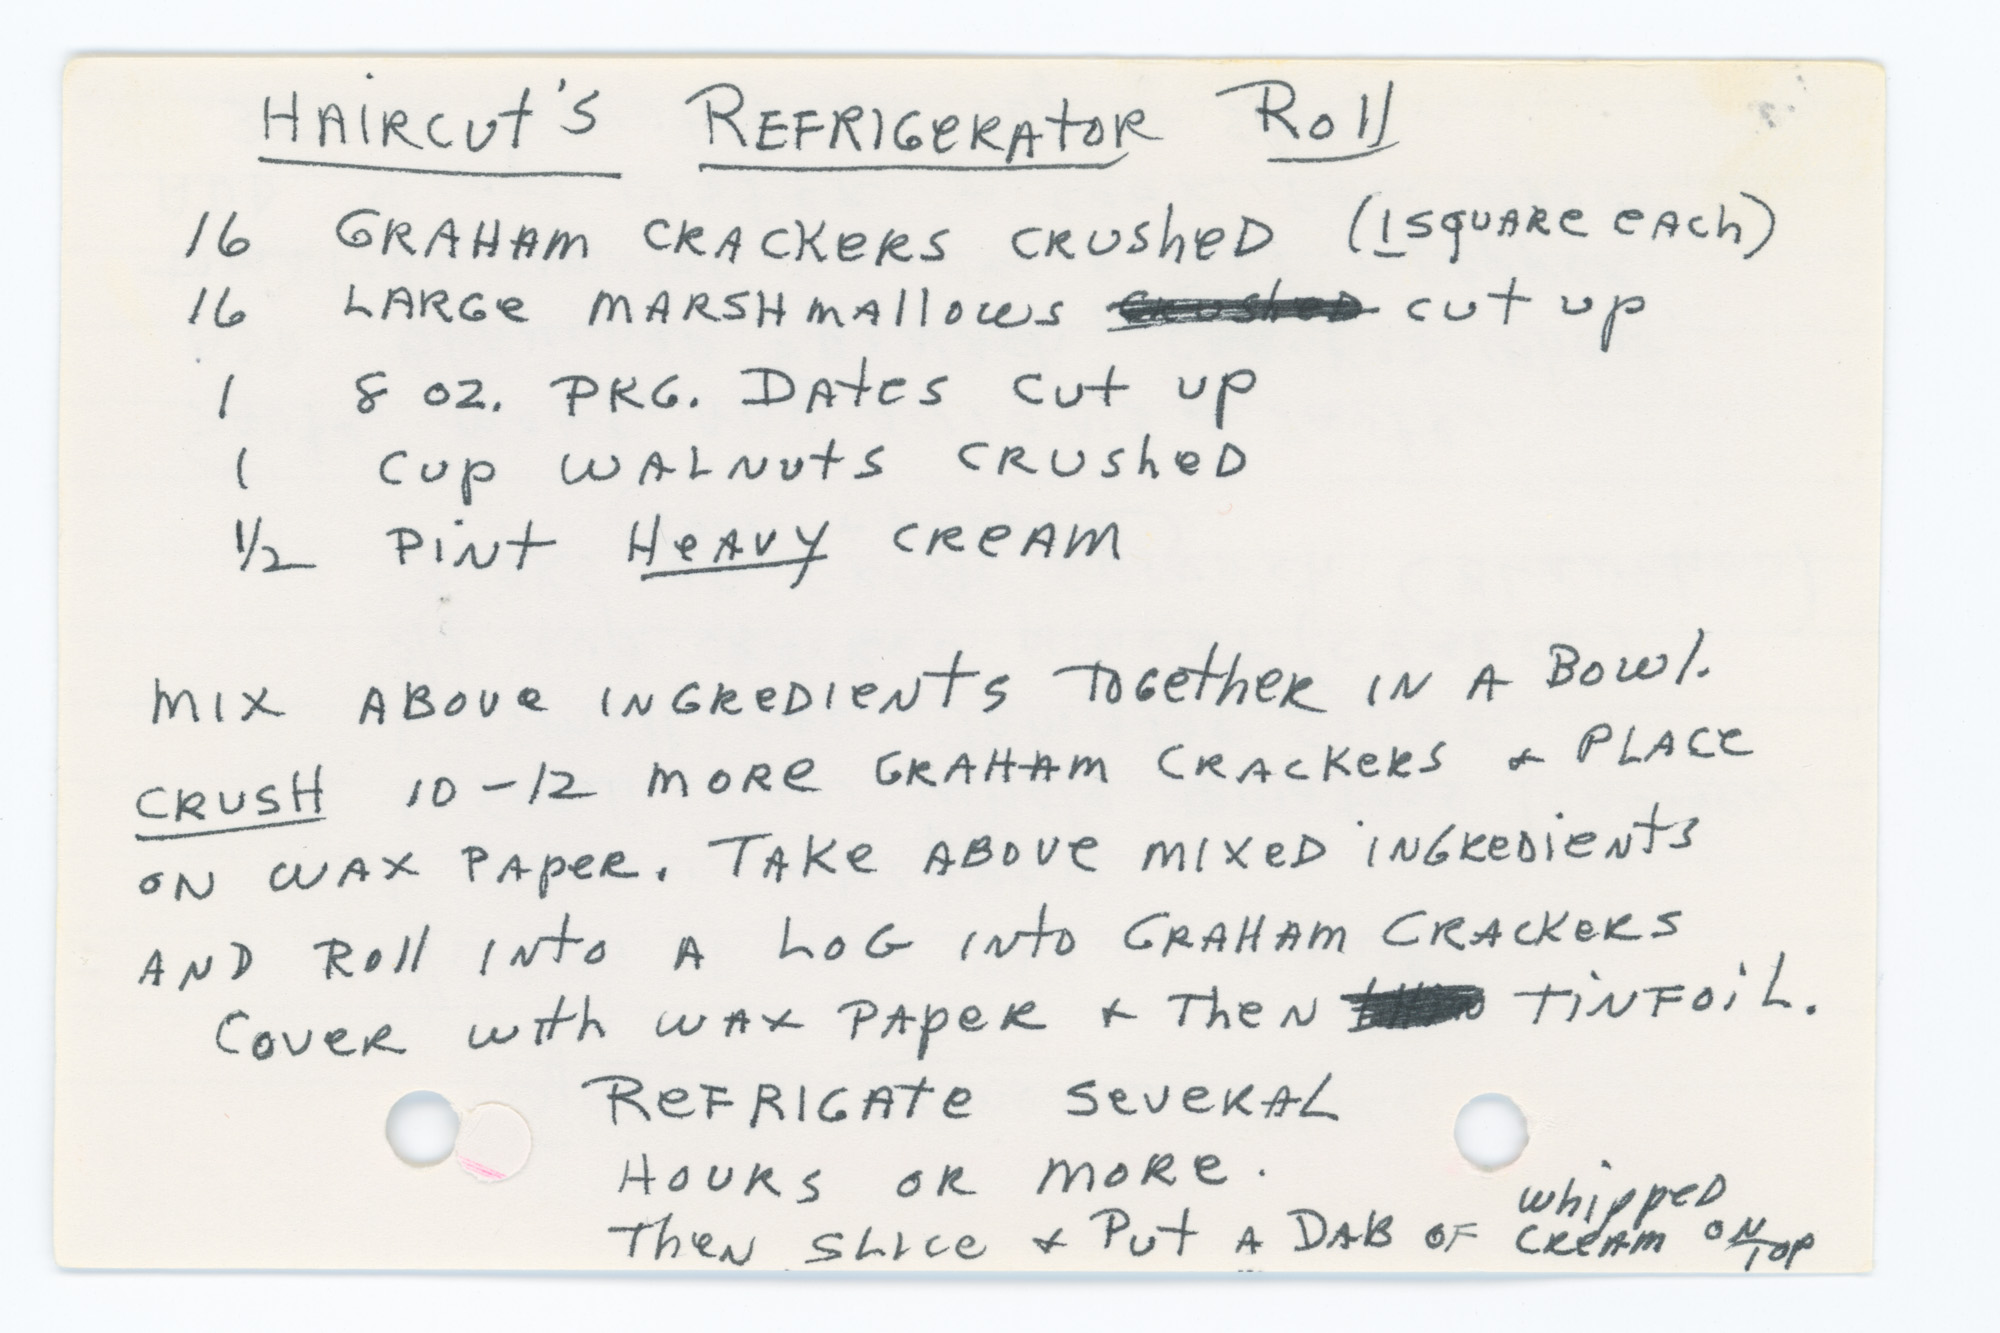 Haircut's Refrigerator Roll
16 Graham Crackers crushed (1 square each)
16 Large marshmallows crushed cut up
1 8 oz. pkg. Dates cut up
1 cup walnuts crushed
1/2 pint Heavy cream
Mix above ingredients together in a Bowl.
Crush 10-12 more Graham Crackers & place
on wax paper. Take above mixed ingredients
and Roll into a Log into Graham Crackers
Cover with wax paper & then tinfoil.
Refrigate several
Hours or more.
Then slice & Put a DAB of whipped
cream on top